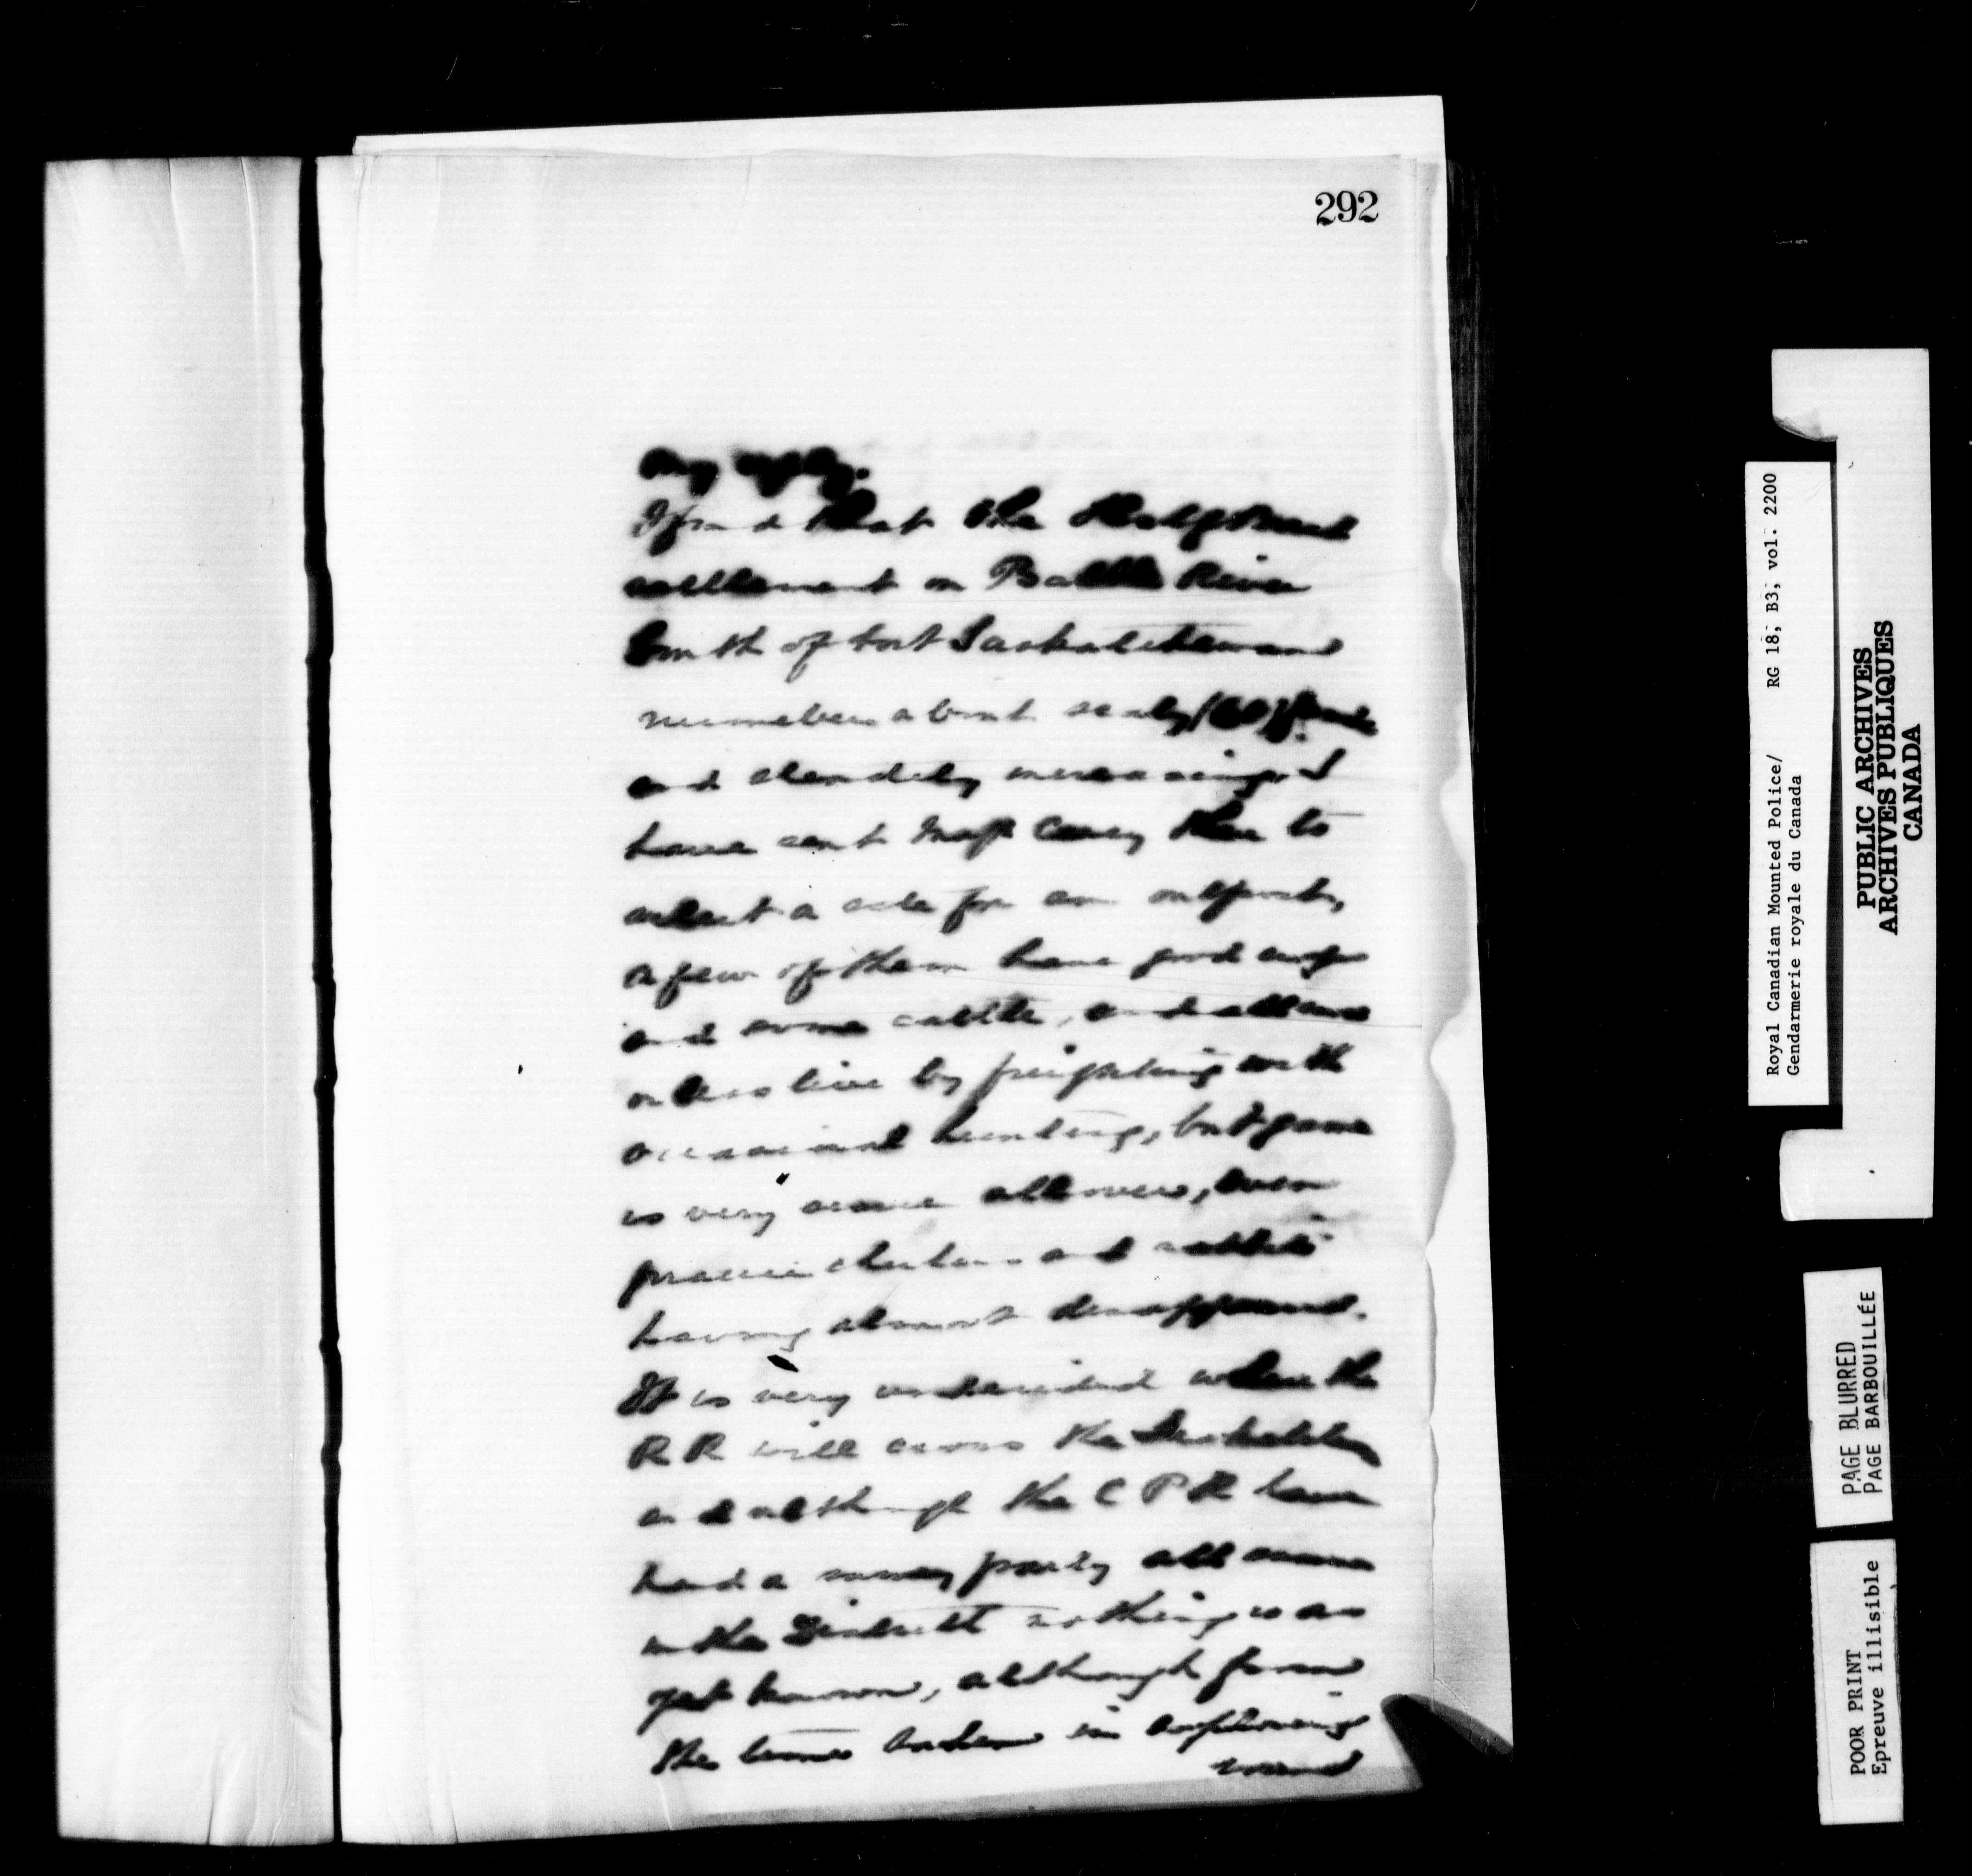 292
my reply.
I find that the Halfbreed
settlement on Battle River
South of Fort Saskatchewan
numbers about sixty (60)
and steadily increasing. I
have sent Insp Casey there to
select a site for an outpost,
a few of them have good crops
and some cattle, and all more
or less live by freighting with
occasional hunting, but game
is very scarce all over, even
prairie chickens and rabbits
having almost disappeared.
It is very undecided where the
R R will cross the
and although the C P R have
had a survey party all summer
in the District nothing is as
yet known, although from
the time taken in exploring
round
Royal Canadian Mounted Police/ RG 18; B3; vol. 2200
Gendarmerie royale du Canada
PUBLIC ARCHIVES
ARCHIVES PUBLIQUES
CANADA
PAGE BLURRED
PAGE BARBOUILLÉE
POOR PRINT
Epreuve illisible